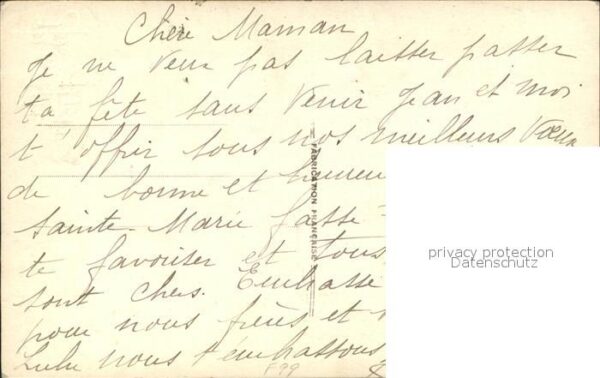 Chère Maman
Je ne veux pas laisser passer
ta fête sans venir Jean et moi
t'offrir tous nos meilleurs vœux
de bonne et heureu
Sainte-Marie fasse
te favoriser et tous
sont chers. Embrasse
pour nous frères et
Lulu nous t'embrassons
FABRICATION FRANÇAISE
privacy protection
Datenschutz
F99